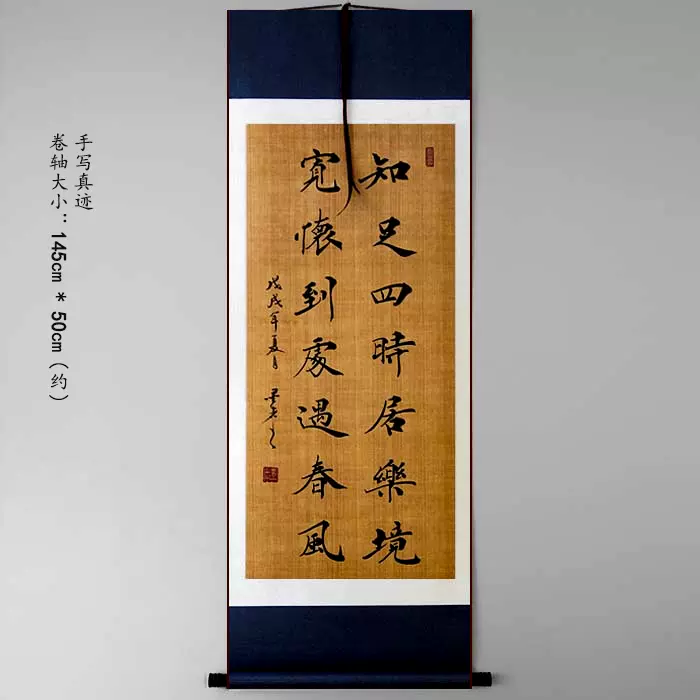 知足四時居樂境
寬懷到處遇春風
戊戌年夏月
手写真迹
卷轴大小：145cm * 50cm（约）